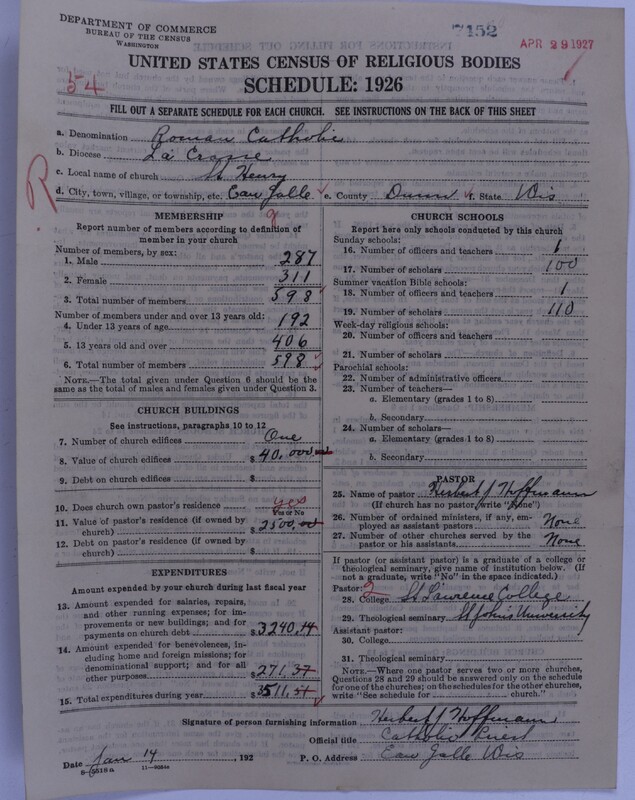 DEPARTMENT OF COMMERCE
BUREAU OF THE CENSUS
WASHINGTON
7152
APR 29 1927
UNITED STATES CENSUS OF RELIGIOUS BODIES
SCHEDULE: 1926
54
FILL OUT A SEPARATE SCHEDULE FOR EACH CHURCH. SEE INSTRUCTIONS ON THE BACK OF THIS SHEET
a. Denomination Roman Catholic
b. Diocese La Crosse
c. Local name of church St Henry
R
d. City, town, village, or township, etc. Eau Galle e. County Dunn f. State Wis
9
MEMBERSHIP
Report number of members according to definition of
member in your church
Number of members, by sex:
1. Male 287
2. Female 311
3. Total number of members 598
Number of members under and over 13 years old:
4. Under 13 years of age 192
5. 13 years old and over 406
6. Total number of members 598
NOTE.—The total given under Question 6 should be
the same as the total of males and females given under Question 3.
CHURCH BUILDINGS
See instructions, paragraphs 10 to 12
7. Number of church edifices One
8. Value of church edifices $ 40,000
9. Debt on church edifices $
10. Does church own pastor's residence yes
Yes or No
11. Value of pastor's residence (if owned by
church) $ 2500.00
12. Debt on pastor's residence (if owned by
church) $
EXPENDITURES
Amount expended by your church during last fiscal year
13. Amount expended for salaries, repairs,
and other running expenses; for im-
provements or new buildings; and for
payments on church debt $ 3240.14
14. Amount expended for benevolences, in-
cluding home and foreign missions; for
denominational support; and for all
other purposes $ 271.37
15. Total expenditures during year $ 3511.51
CHURCH SCHOOLS
Report here only schools conducted by this church
Sunday schools:
16. Number of officers and teachers 1
17. Number of scholars 100
Summer vacation Bible schools:
18. Number of officers and teachers 1
19. Number of scholars 110
Week-day religious schools:
20. Number of officers and teachers
21. Number of scholars
Parochial schools:
22. Number of administrative officers
23. Number of teachers—
a. Elementary (grades 1 to 8)
b. Secondary
24. Number of scholars—
a. Elementary (grades 1 to 8)
b. Secondary
PASTOR
25. Name of pastor Herbert J Hoffmann
(If church has no pastor, write "None")
26. Number of ordained ministers, if any, em-
ployed as assistant pastors None
27. Number of other churches served by the
pastor or his assistants None
If pastor (or assistant pastor) is a graduate of a college or
theological seminary, give name of institution below. (If
not a graduate, write "No" in the space indicated.)
Pastor: 2
28. College St Lawrence College
29. Theological seminary St John's University
Assistant pastor:
30. College
31. Theological seminary
NOTE.—Where one pastor serves two or more churches,
Questions 28 and 29 should be answered only on the schedule
for one of the churches; on the schedules for the other churches,
write "See schedule for church."
Signature of person furnishing information Herbert J Hoffmann
Official title Catholic Priest
Date Jan 14, 192 P. O. Address Eau Galle Wis
8—5318a 11—9054a